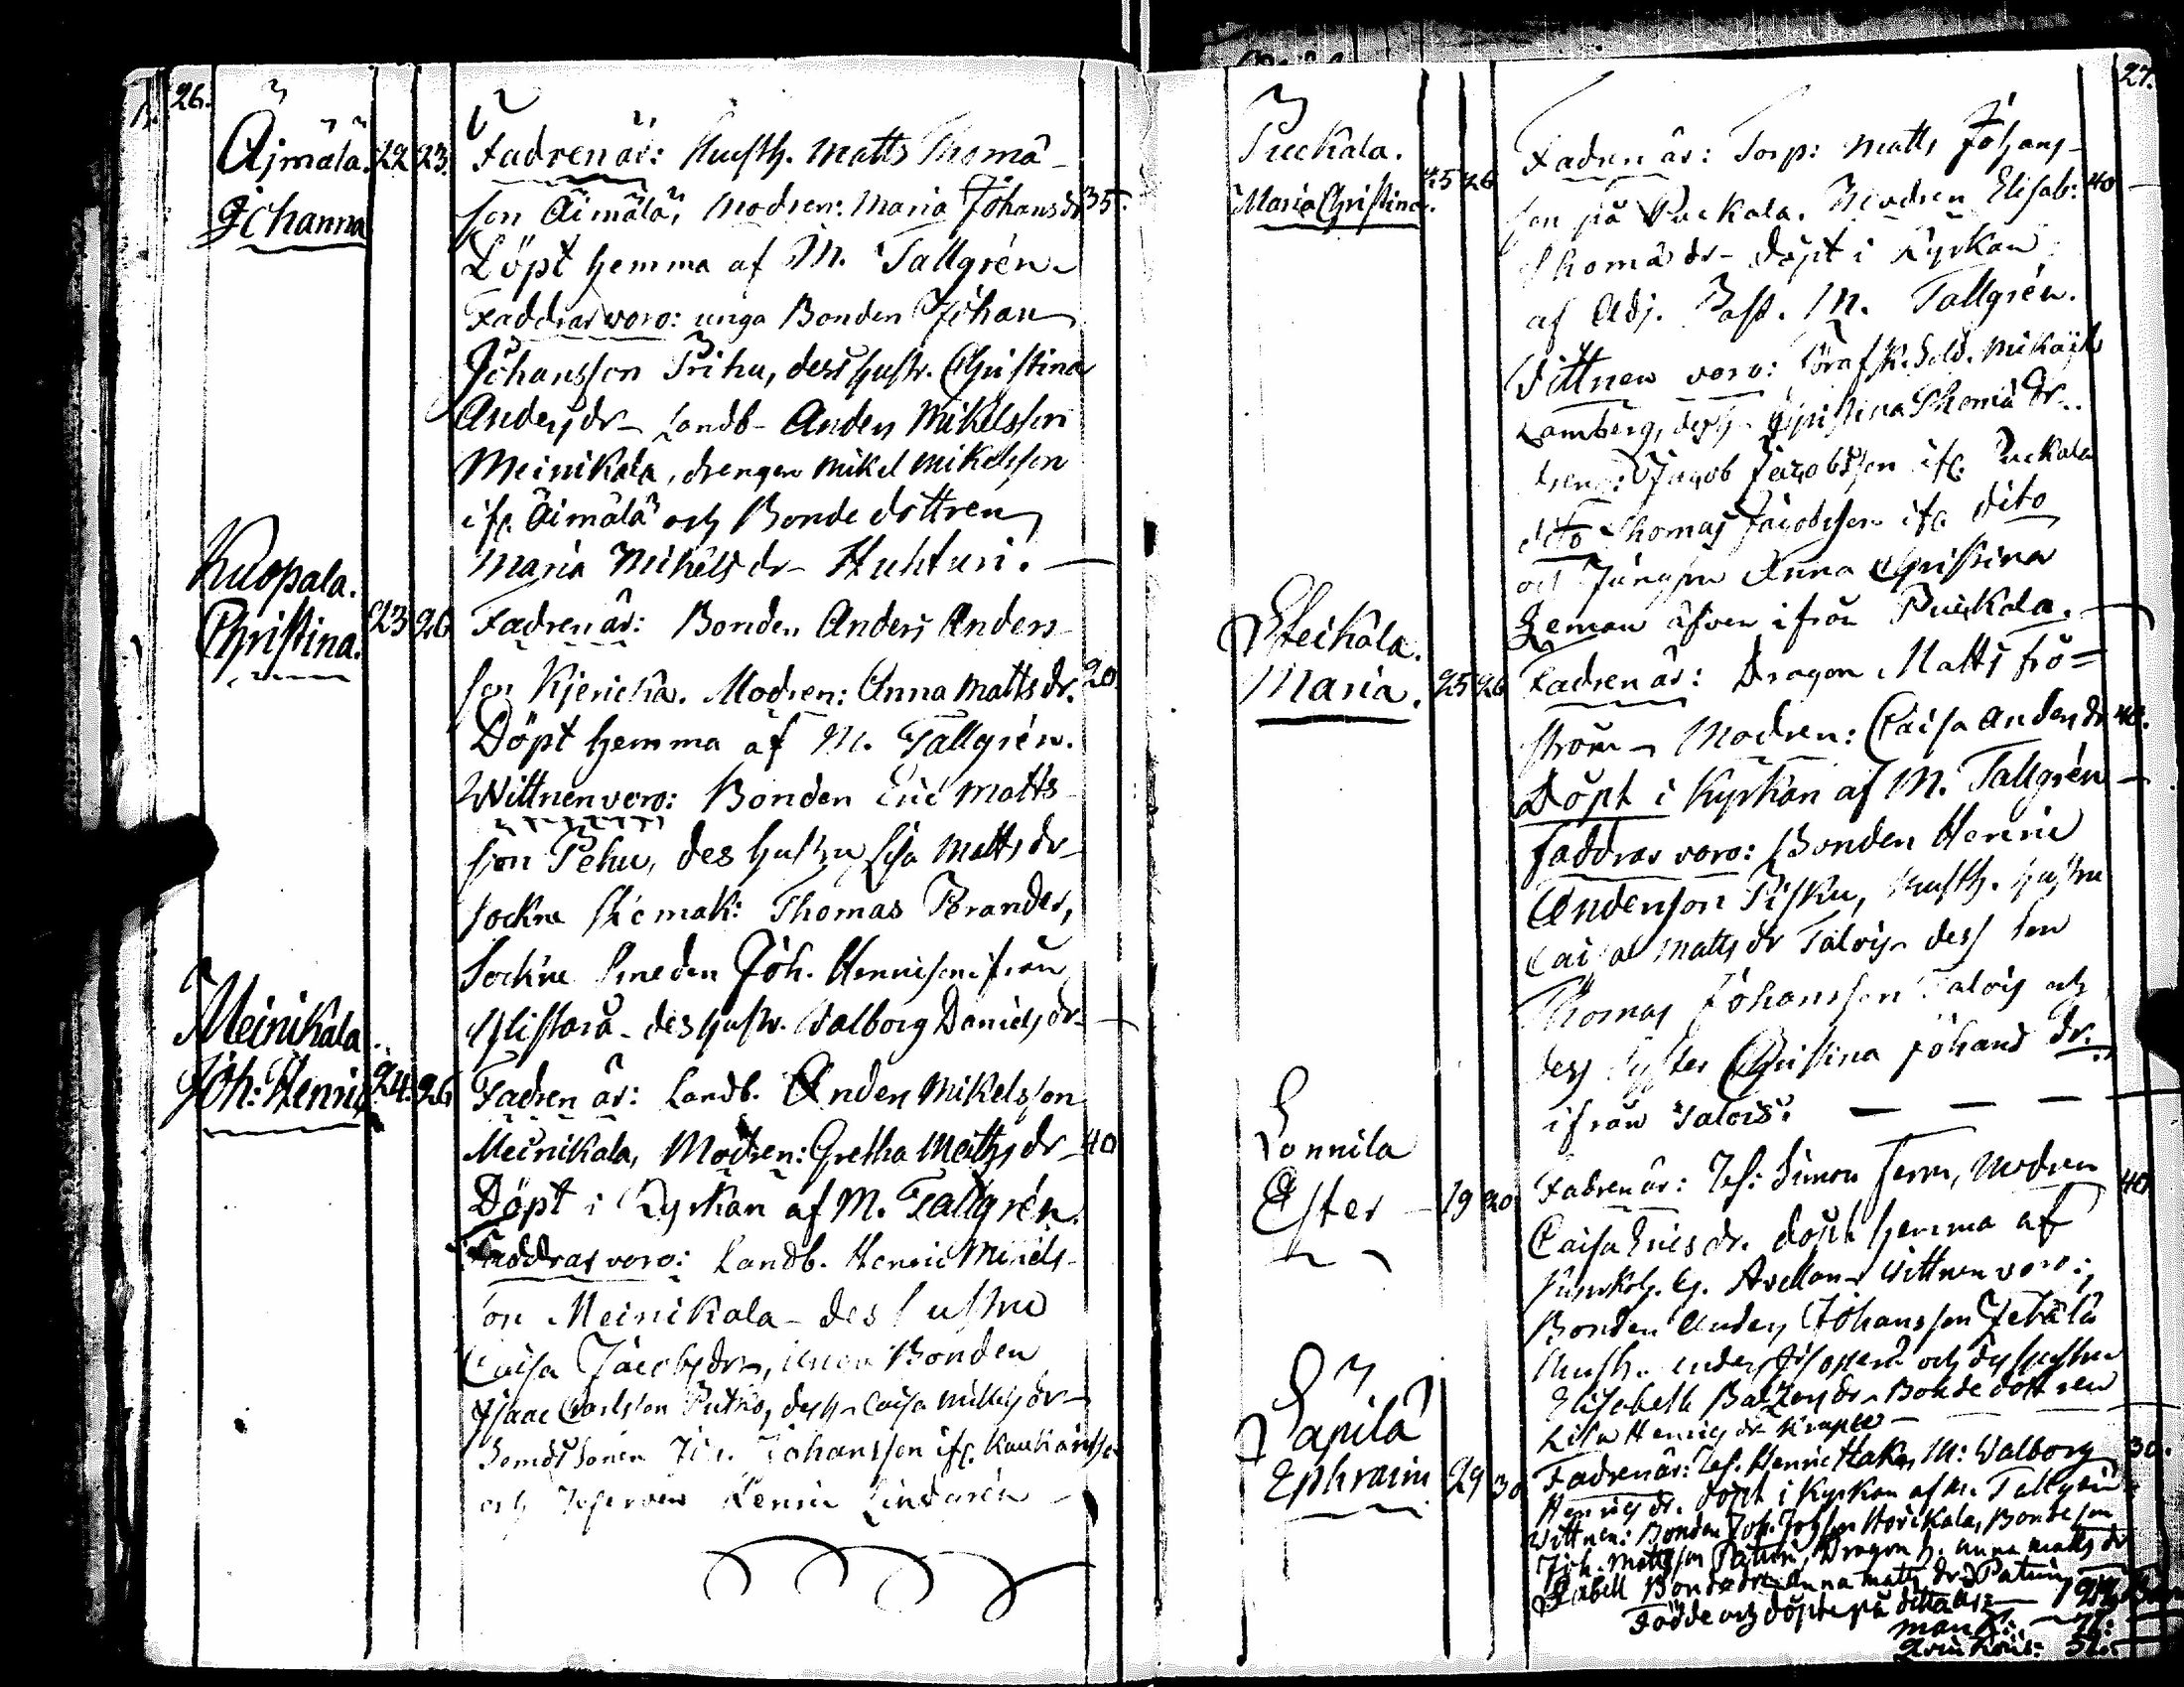 26.
Äjmälä. 22 23. Fadren är: Rusth. Matts Thomä-
Johanna son Äimälä, Modren: Maria Johans dr 35.
Döpt hemma af M. Tallgrén
Faddrar voro: unga Bonden Johan
Johansson Prihu, dess hustr. Christina
Anders dr - Landb - Anders Mikelsson
Meinikala, drengen Mikel Mikelsson
ifr. Äimälä och Bonde dottren
Maria Mikels dr - Huhturi. —
Kuopala.
Christina. 23 26 Fadren är: Bonden Anders Anders-
son Kjerickä. Modren: Anna Matts dr. 20
Döpt hemma af M. Tallgrén.
Wittnen voro: Bonden Eric Matts-
son Pehu, des hustru Lisa Matts dr -
Sockne skomak: Thomas Brander,
Sockne Smeden Joh. Henrisson ifrån
des hustr. Walborg Daniels dr -
Meinikala.
Joh: Henric 24. 26 Fadren är: Landb. Anders Mikelsson
Meinikala, Modren: Gretha Matts dr - 40
Döpt i Kyrkan af M. Tallgrén.
Faddrar voro: Landb. Henric Mikels-
son Meinikala - des hustru
Caisa Jacobs dr -, Bonden
Isaac Carlsson des h - Caisa Mikels dr -
Johansson ifr.
och Henric Lindgrén -
27.
Puckala.
Maria Christina. 25 26 Fadren är: Torp: Matts Johans-
son på Puckala. Modren Elisab: 40 —
Thomä dr - döpt i Kyrkan
af Adj. Past. M. Tallgrén.
Vittnen voro: Sold. Mikaël
Lamberg, des h - Christina Thomä dr -.
dreng: Jacob Jacobsson ifr. Puckala
dito Thomas Jacobsson ifr. dito
och Jungfru Anna Christina
Zeman äfven ifrån Puckala. —
Heikälä.
Maria. 25 26 Fadren är: Dragon Matts Frö=
ström - Modren: Caisa Anders dr 40.
Döpt i Kyrkan af M. Tallgrén —
Faddrar voro: Bonden Henric
Andersson Pisku, Rusth. hustru
Caisa Matts dr Talois - dess son
Thomas Johansson Talois och
dess syster Christina Johans dr.
ifrån Talois. — — — —
Lonnila
Ester - 19 20 Fadren är: Ref: Simon Ferm, Modren 40
Caisa Erics dr. döpt hemma af
G. Avellan - Wittnen voro:
Bonden Anders Johansson
Rusth. Anders och des hustru
Elisabeth dr - Bonde dottren
Lisa Henrics dr
Papila
Ephraim 29 30 Fadren är: Ref. Henric Hake, M: Walborg 30.
Henrics dr. döpt i Kyrkan af M. Tallgrén
Wittnen: Bonden Joh. Johsson Horikala, Bonde son
Joh. Mattsson Patuni, Dragon h. Anna Matts dr
Bonde dr: Anna Matts dr Patuni
Födde och döpte på detta år: —
Mank:
Qvinkön: